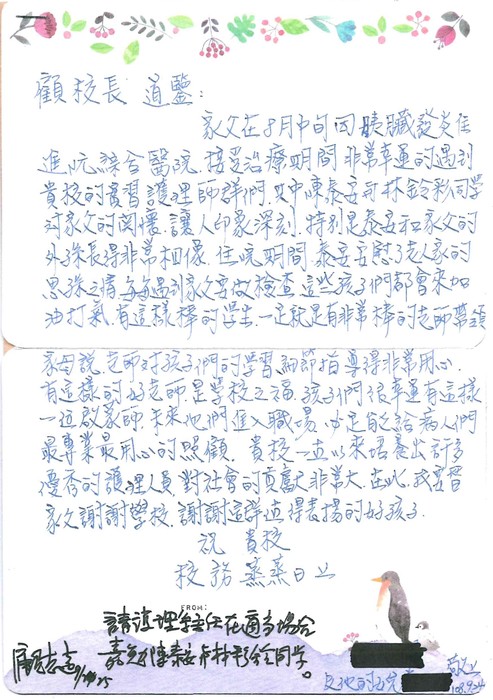 顧校長 道鑒：
家父在8月中旬因胰臟發炎住
進阮綜合醫院，接受治療期間，非常幸運的遇到
貴校的實習護理師群們，其中陳泰安和林鈴彩同學
對家父的關懷，讓人印象深刻，特別是泰安和家父的
外孫長得非常相像，住院期間，泰安安慰了老人家的
思孫之情，每每遇到家父要做檢查，這些孩子們都會來加
油打氣，有這樣棒的學生，一定就是有非常棒的老師帶領
家母說，老師對孩子們的學習，細節指導得非常用心，
有這樣的好老師，是學校之福，孩子們很幸運有這樣
一位啟蒙師，未來他們進入職場，必定能給病人們
最專業最用心的照顧，貴校一直以來培養出許多
優秀的護理人員，對社會的貢獻非常大，在此，我要替
家父謝謝學校，謝謝這群值得表揚的好孩子。
祝 貴校
校務蒸蒸日上
FROM:
請護理系主任在適當場合
嘉勉陳泰安 林 同學。
敬上
108.9.24